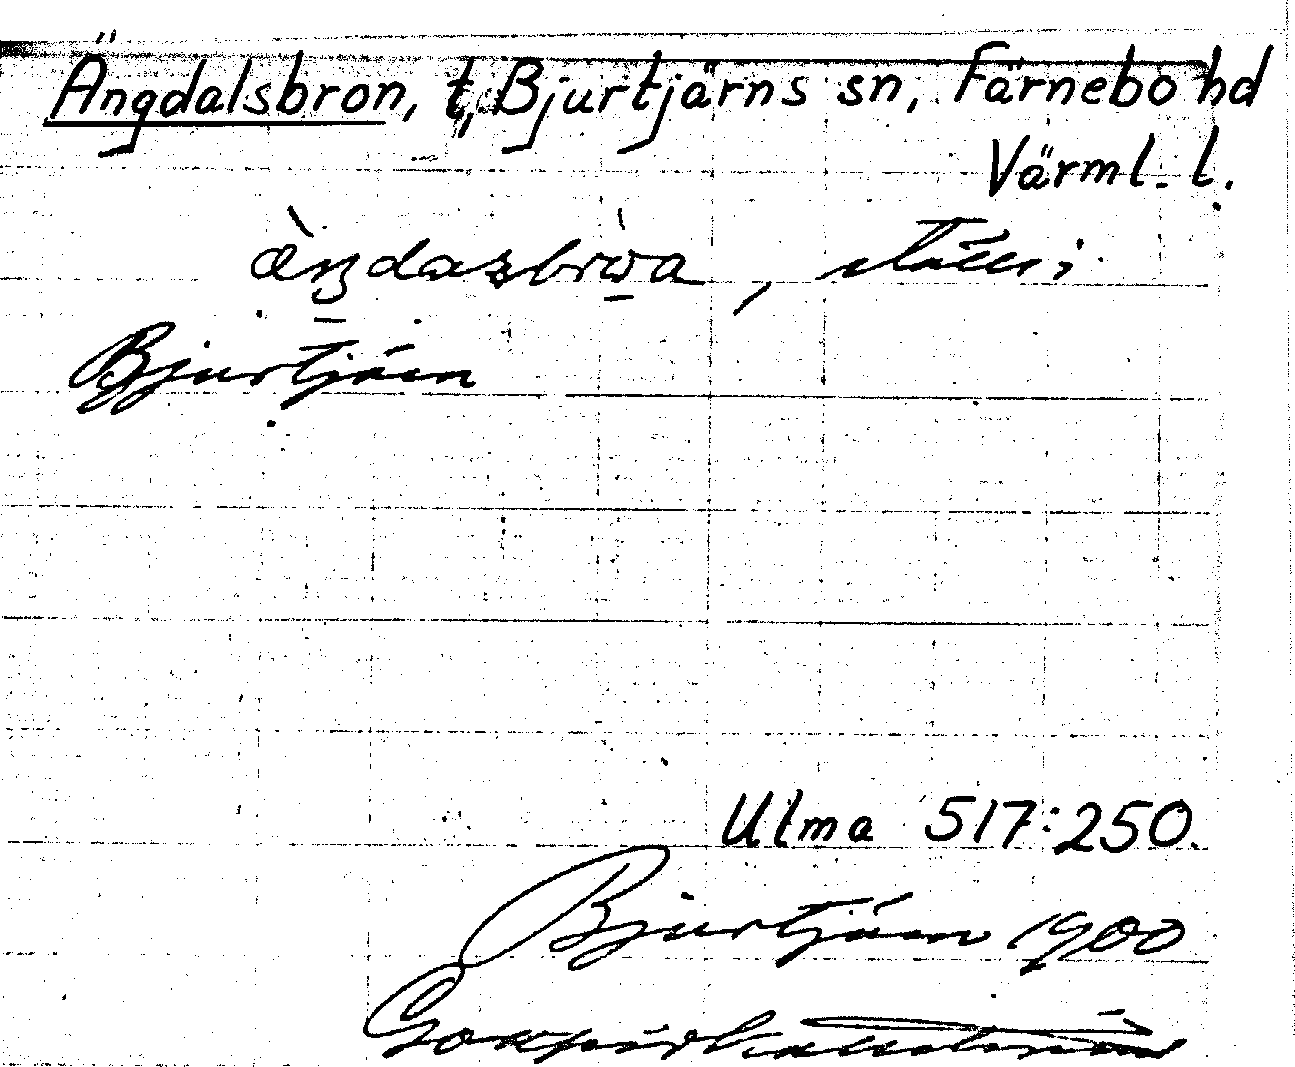 Ängdalsbron, t, Bjurtjärns sn, Färnebo hd
Värml. l.
ställe i
Bjurtjärn
Ulma 517:250.
Bjurtjärn 1900